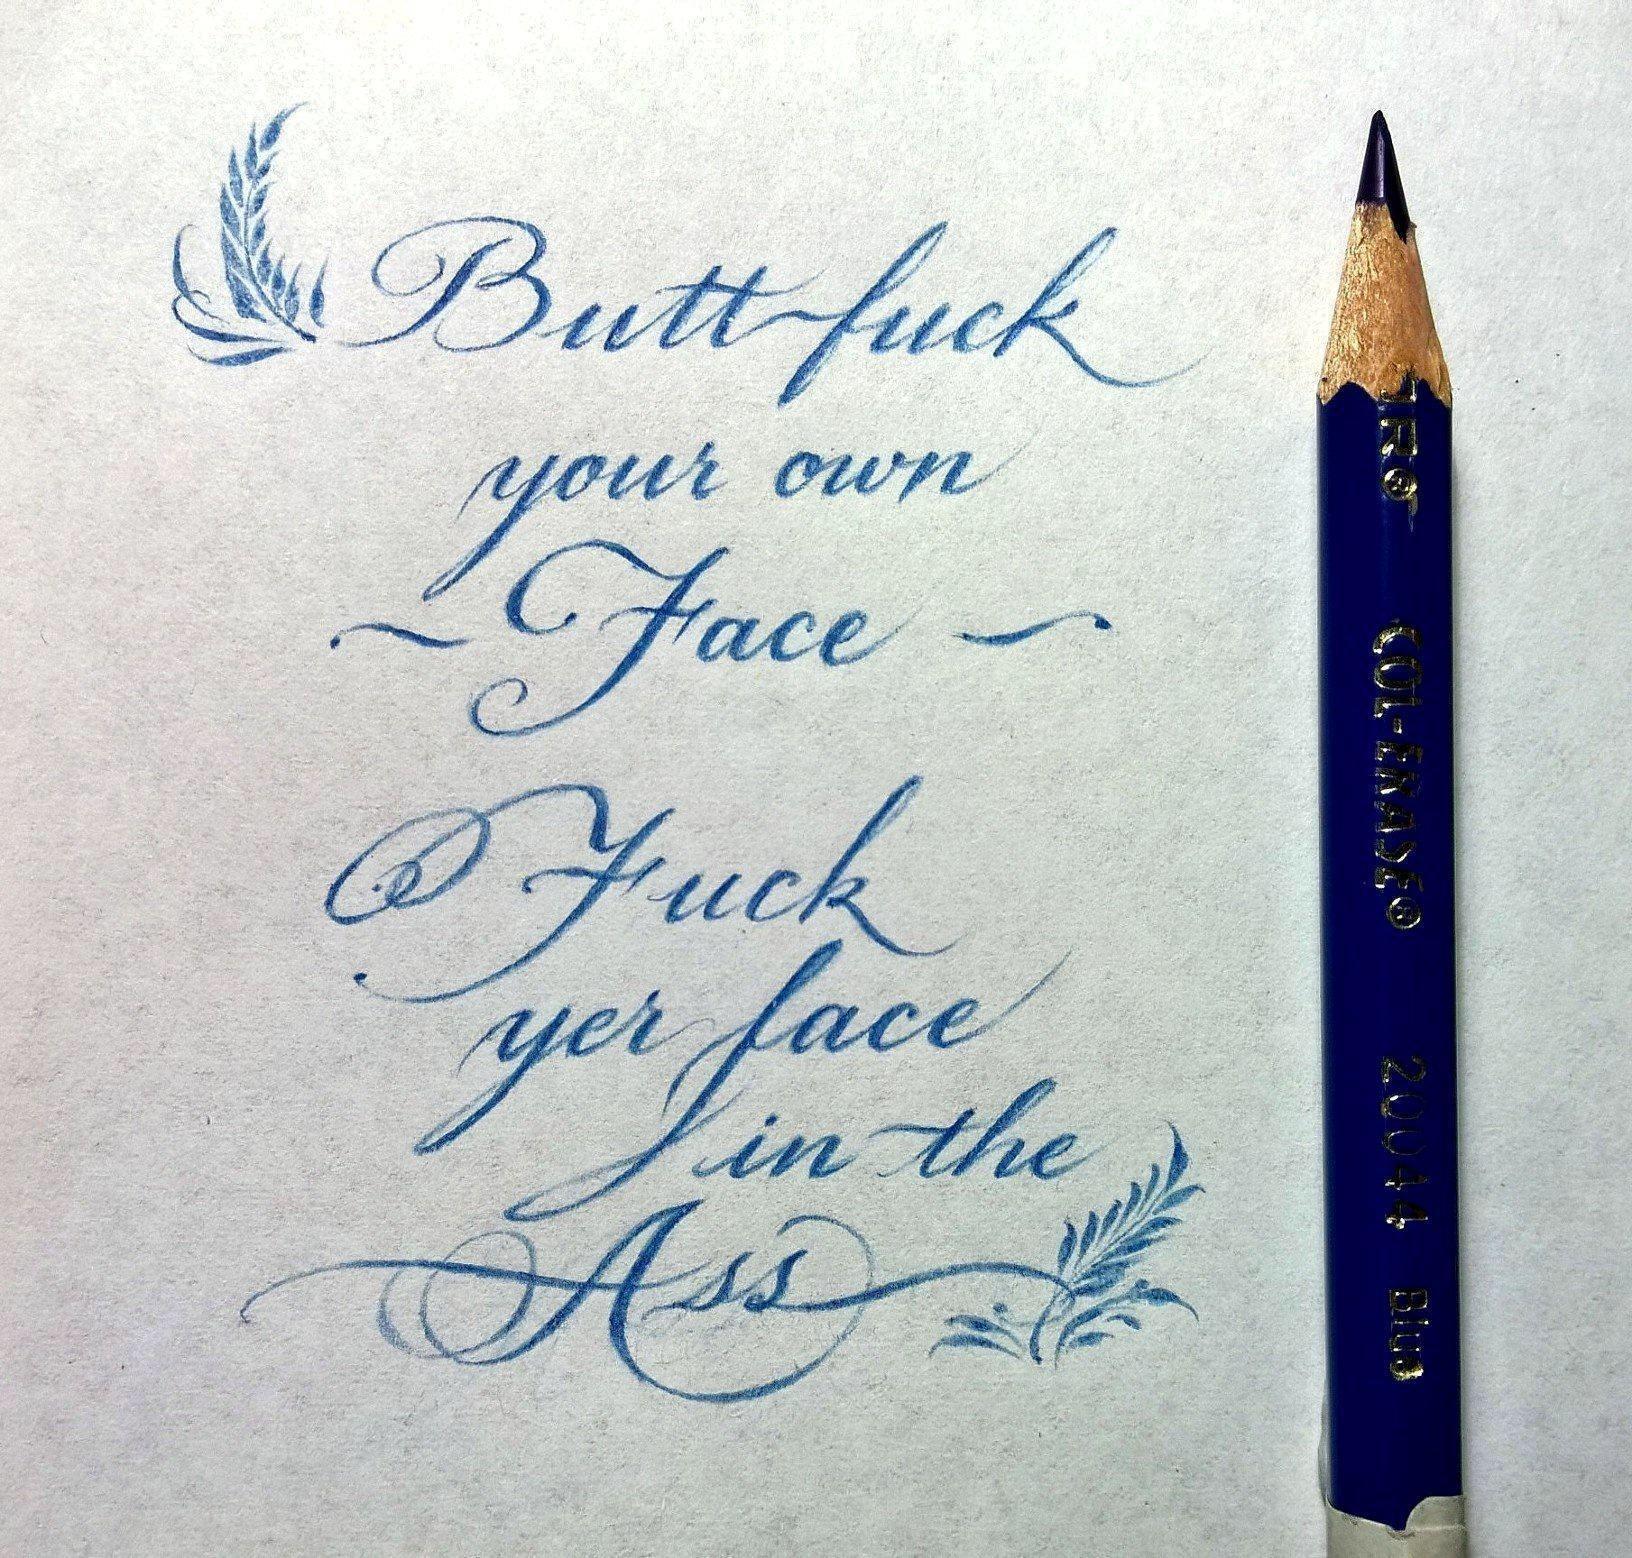 Butt-fuck
your own
~ Face ~
Fuck
yer face
in the
Ass
COL-ERASE® 20044 Blue